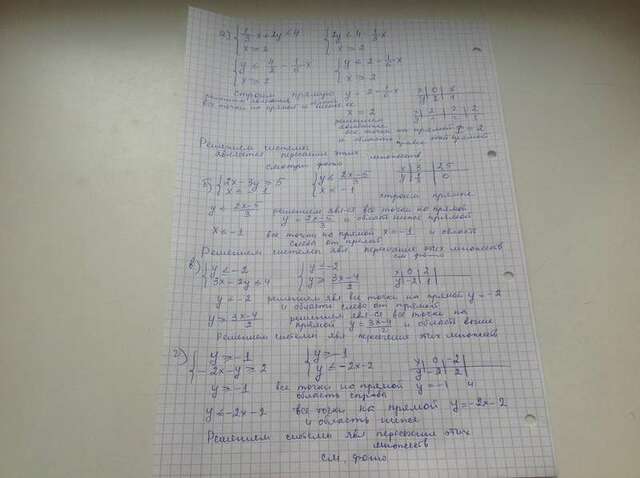 а) { 1/3 x + 2y ≤ 4 { 2y ≤ 4 - 1/3 x
x ≥ 2 x ≥ 2
{ y ≤ 4/2 - 1/6 x { y ≤ 2 - 1/6 x
x ≥ 2 x ≥ 2
Строим прямую y = 2 - 1/6 x
все точки на прямой и ниже
x = 2
решением
все точки на прямой = 2
и область правее этой прямой
Решением системы
является пересечение этих
множеств
смотри фото
Б) { 2x - 3y ≥ 5 { y ≤ (2x-5)/3
x ≤ -1 x ≤ -1
строим прямые
y ≤ (2x-5)/3 решением явл-ся все точки на прямой
y = (2x-5)/3 и область ниже прямой
x ≤ -1 все точки на прямой x = -1 и область
слева от прямой
Решением системы явл. пересечение этих множеств
см фото
в) { y ≤ -2 { y ≤ -2
3x - 2y ≤ 4 y ≥ (3x-4)/2
x 0 2
y -2 1
y ≤ -2 решением явл все точки на прямой y = -2
и области слево от прямой
y ≥ (3x-4)/2 решением явл-ся все точки на
прямой y = (3x-4)/2 и область выше
Решением системы явл пересечение этих множеств
г) { y ≥ -1 { y ≥ -1
-2x - y ≥ 2 y ≤ -2x - 2
x 0 -2
y -2 2
y ≥ -1 все точки на прямой y = -1 и
область справа
y ≤ -2x - 2 все точки на прямой y = -2x - 2
и область ниже
Решением системы явл пересечение этих
множеств
см. фото